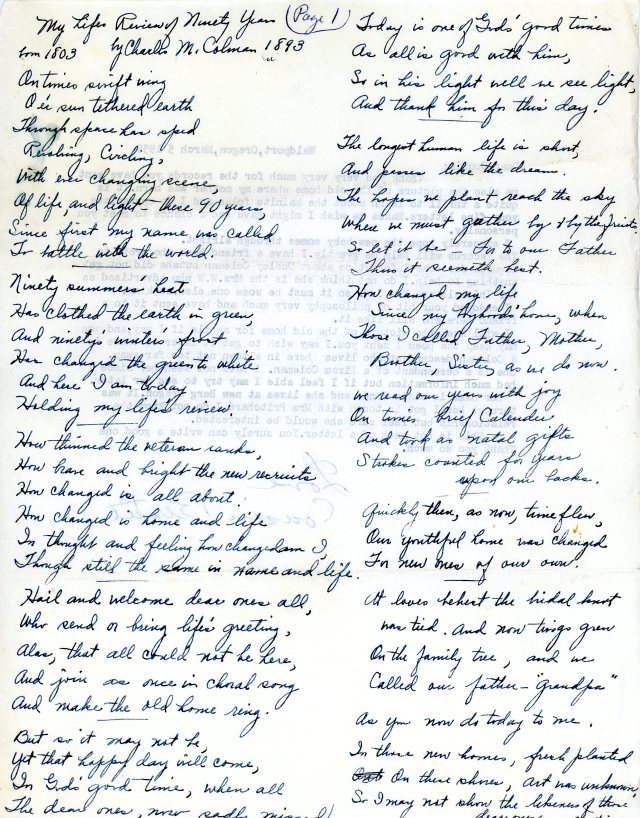 My Lifes Review of Ninety Years (Page 1)
born 1803 by Charles M. Colman 1893
On times swift wing
O'er sun tethered earth
Through space has sped
Rushing, Circling,
With ever changing scene,
Of life, and light these 90 years,
Since first my name was called
To battle with the world.
Ninety summers' heat
Has clothed the earth in green,
And ninety winters frost
Has changed the green to white
And here I am today
Holding my life's review.
How thinned the veteran ranks,
How brave and bright the new recruits
How changed is all about.
How changed is home and life
In thought and feeling how changed am I,
Though still the same in name and life.
Hail and welcome dear ones all,
Who send or bring life's greeting,
Alas, that all could not be here,
And join as once in choral song
And make the old home ring.
But so it may not be,
Yet that happy day will come,
In God's good time, when all
The dear ones, now sadly missed
Today is one of God's good times
As all is good with him,
So in his light well we see light,
And thank him for this day.
The longest human life is short,
And passes like the dream.
The hopes we plant reach the sky
Where we must gather by & by the fruits,
So let it be - For to our Father
Thus it seemeth best.
How changed my life
Since my boyhoods' home, when
Those I called Father, Mother,
Brother, Sister, as we do now.
We read our years with joy
On times brief Calender
And took as natal gifts
Strokes counted for years
upon our backs.
Quickly then, as now, time flew,
Our youthful home was changed
For new ones of our own.
At loves behest the bridal knot
was tied. And now twigs grew
On the family tree, and we
Called our father - "Grandpa"
As you now do today to me.
In those new homes, fresh planted
On these shores, art was unknown,
So I may not show the likeness of those